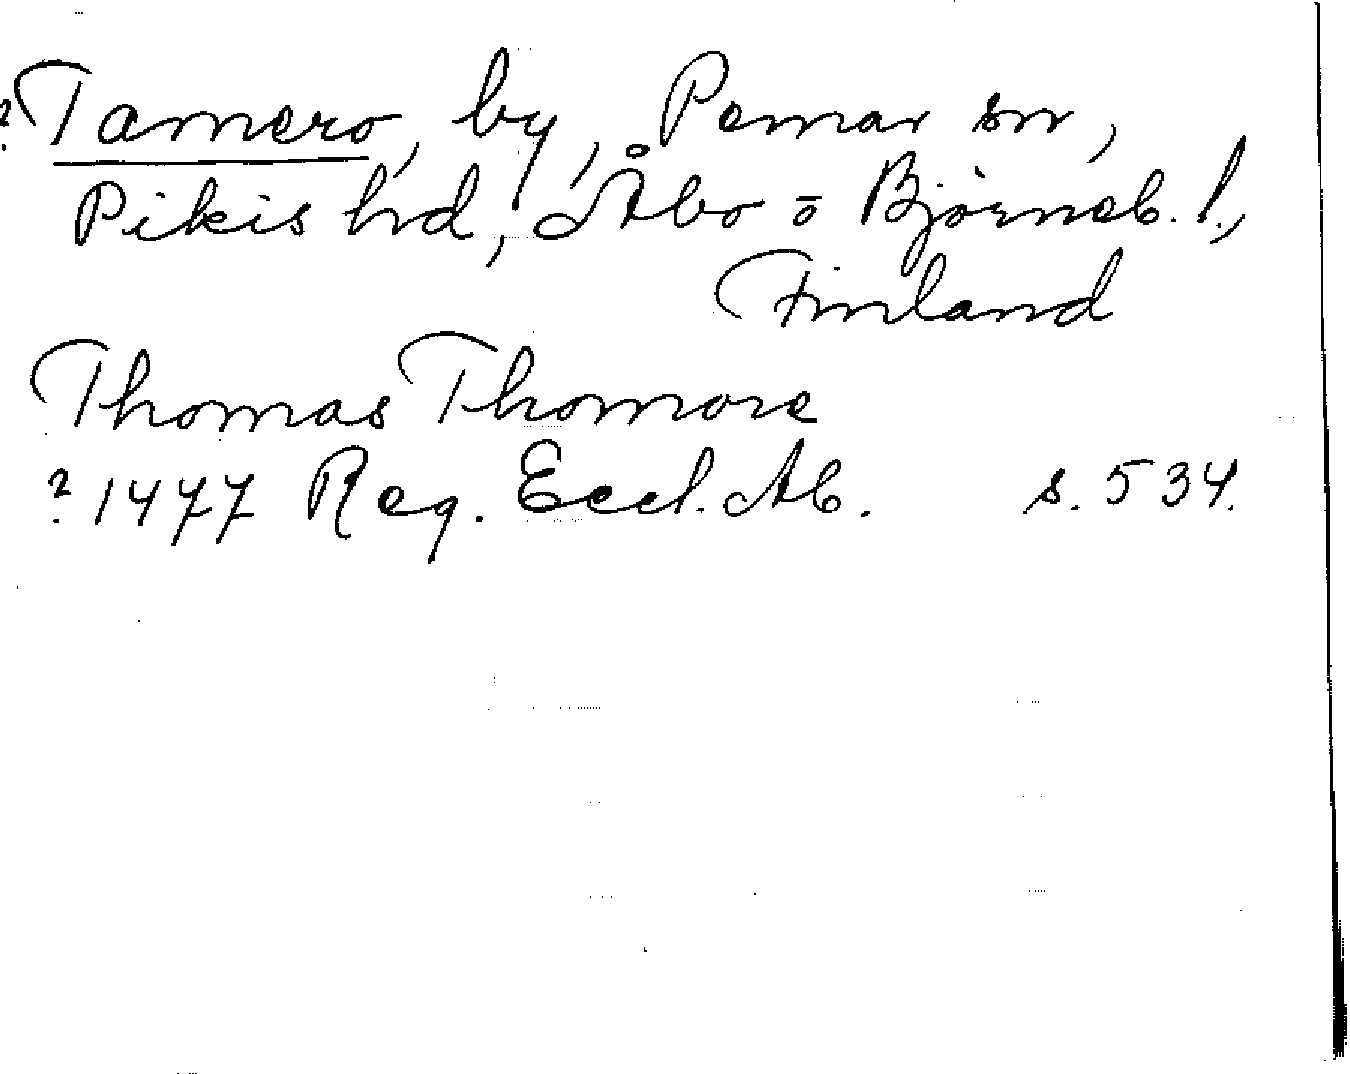 ? Tamero, by, Pemar sn,
Pikis hd, Åbo o Björneb. l.,
Finland
Thomas Thomore
? 1477 Reg. Eccl. Ab. s. 534.